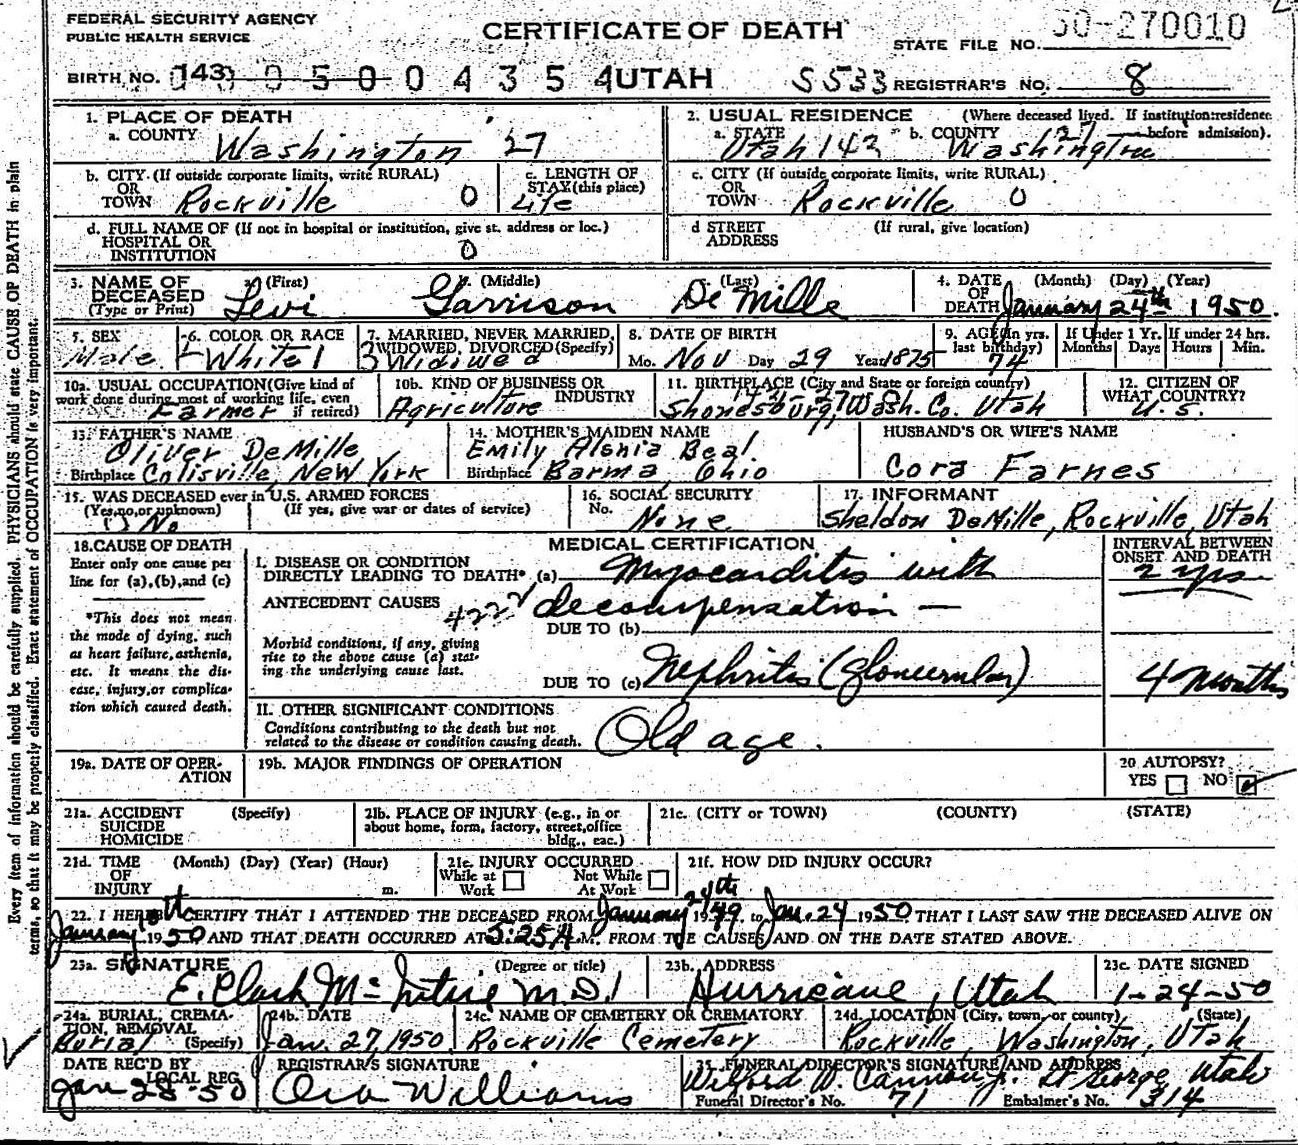 FEDERAL SECURITY AGENCY
PUBLIC HEALTH SERVICE
CERTIFICATE OF DEATH
STATE FILE NO. 50-270010
BIRTH NO. 143 0500 4354 UTAH S533 REGISTRAR'S NO. 8
1. PLACE OF DEATH
a. COUNTY Washington 27
2. USUAL RESIDENCE (Where deceased lived. If institution: residence before admission).
a. STATE Utah 143 b. COUNTY Washington 27
b. CITY (If outside corporate limits, write RURAL)
OR
TOWN Rockville 0
c. LENGTH OF
STAY (this place)
Life
c. CITY (If outside corporate limits, write RURAL)
OR
TOWN Rockville 0
d. FULL NAME OF (If not in hospital or institution, give st. address or loc.)
HOSPITAL OR
INSTITUTION 0
d STREET (If rural, give location)
ADDRESS
3. NAME OF DECEASED (Type or Print)
a. (First) b. (Middle) c. (Last)
Levi Garrison De Mille
4. DATE OF DEATH (Month) (Day) (Year)
January 24th 1950
5. SEX
Male
6. COLOR OR RACE
White 1
7. MARRIED, NEVER MARRIED,
WIDOWED, DIVORCED (Specify)
3 Widiwed
8. DATE OF BIRTH
Mo. Nov Day 29 Year 1875
9. AGE (In yrs. last birthday)
74
If Under 1 Yr.
Months Days
If under 24 hrs.
Hours Min.
10a. USUAL OCCUPATION (Give kind of
work done during most of working life, even
if retired)
Farmer
10b. KIND OF BUSINESS OR
INDUSTRY
Agriculture
11. BIRTHPLACE (City and State or foreign country)
Shonesburg, Wash. Co. Utah
12. CITIZEN OF
WHAT COUNTRY?
U.S.
13. FATHER'S NAME
Oliver DeMille
Birthplace Colisville New York
14. MOTHER'S MAIDEN NAME
Emily Alsnia Beal
Birthplace Barma Ohio
HUSBAND'S OR WIFE'S NAME
Cora Farnes
15. WAS DECEASED ever in U.S. ARMED FORCES
(Yes, no, or unknown) (If yes, give war or dates of service)
No
16. SOCIAL SECURITY
No. None
17. INFORMANT
Sheldon DeMille, Rockville, Utah
18. CAUSE OF DEATH
Enter only one cause per
line for (a), (b), and (c)
*This does not mean
the mode of dying, such
as heart failure, asthenia,
etc. It means the dis-
ease, injury, or complica-
tion which caused death.
MEDICAL CERTIFICATION
I. DISEASE OR CONDITION
DIRECTLY LEADING TO DEATH* (a) Myocarditis with
ANTECEDENT CAUSES 422 decompensation —
DUE TO (b)
Morbid conditions, if any, giving
rise to the above cause (a) stat-
ing the underlying cause last.
DUE TO (c) Nephritis (glomerular)
INTERVAL BETWEEN
ONSET AND DEATH
2 yrs
4 months
II. OTHER SIGNIFICANT CONDITIONS
Conditions contributing to the death but not
related to the disease or condition causing death.
Old age.
19a. DATE OF OPER-
ATION
19b. MAJOR FINDINGS OF OPERATION
20 AUTOPSY?
YES NO
21a. ACCIDENT (Specify)
SUICIDE
HOMICIDE
21b. PLACE OF INJURY (e.g., in or
about home, form, factory, street, office
bldg., eac.)
21c. (CITY or TOWN) (COUNTY) (STATE)
21d. TIME (Month) (Day) (Year) (Hour)
OF
INJURY m.
21e. INJURY OCCURRED
While at Work Not While At Work
21f. HOW DID INJURY OCCUR?
24th
22. I HEREBY CERTIFY THAT I ATTENDED THE DECEASED FROM January 1949 to Jan. 24 1950 THAT I LAST SAW THE DECEASED ALIVE ON
January 1950 AND THAT DEATH OCCURRED AT 5:25 A M. FROM THE CAUSES AND ON THE DATE STATED ABOVE.
23a. SIGNATURE (Degree or title)
E. Clark McIntire M.D.
23b. ADDRESS
Hurricane, Utah
23c. DATE SIGNED
1-24-50
24a. BURIAL, CREMA-
TION, REMOVAL
(Specify)
Burial
24b. DATE
Jan. 27, 1950
24c. NAME OF CEMETERY OR CREMATORY
Rockville Cemetery
24d. LOCATION (City, town, or county) (State)
Rockville, Washington, Utah
DATE REC'D BY
LOCAL REG.
Jan 28-50
REGISTRAR'S SIGNATURE
Ora Williams
25. FUNERAL DIRECTOR'S SIGNATURE AND ADDRESS
Wilford W. Cannon Jr. St George, Utah
Funeral Director's No. 71 Embalmer's No. 314
Every item of information should be carefully supplied. PHYSICIANS should state CAUSE OF DEATH in plain
terms, so that it may be properly classified. Exact statement of OCCUPATION is very important.